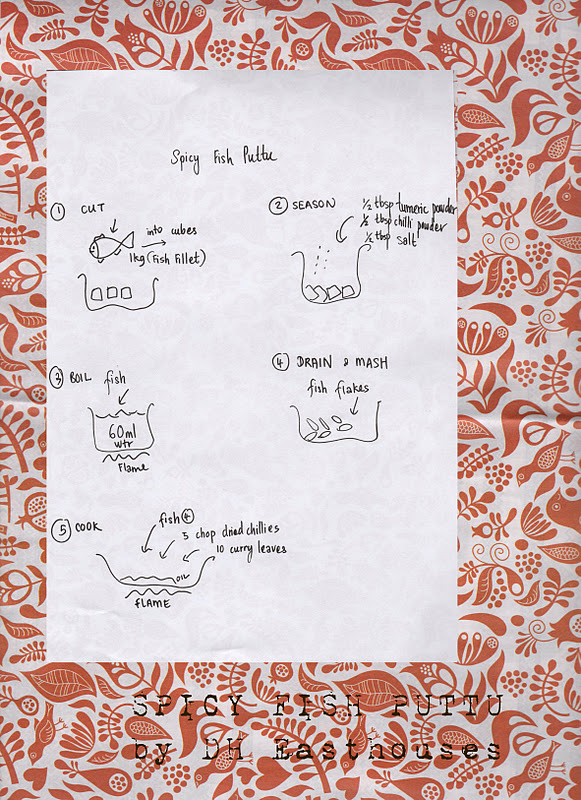 Spicy Fish Puttu
① CUT
into cubes
1kg (fish fillet)
② SEASON
1/2 tbsp tumeric powder
1/2 tbsp chilli powder
1/2 tbsp salt
③ BOIL fish
60ml
wtr
flame
④ DRAIN & MASH
fish flakes
⑤ COOK
fish ④
5 chop dried chillies
10 curry leaves
OIL
FLAME
SPICY FISH PUTTU
by DH Easthouses